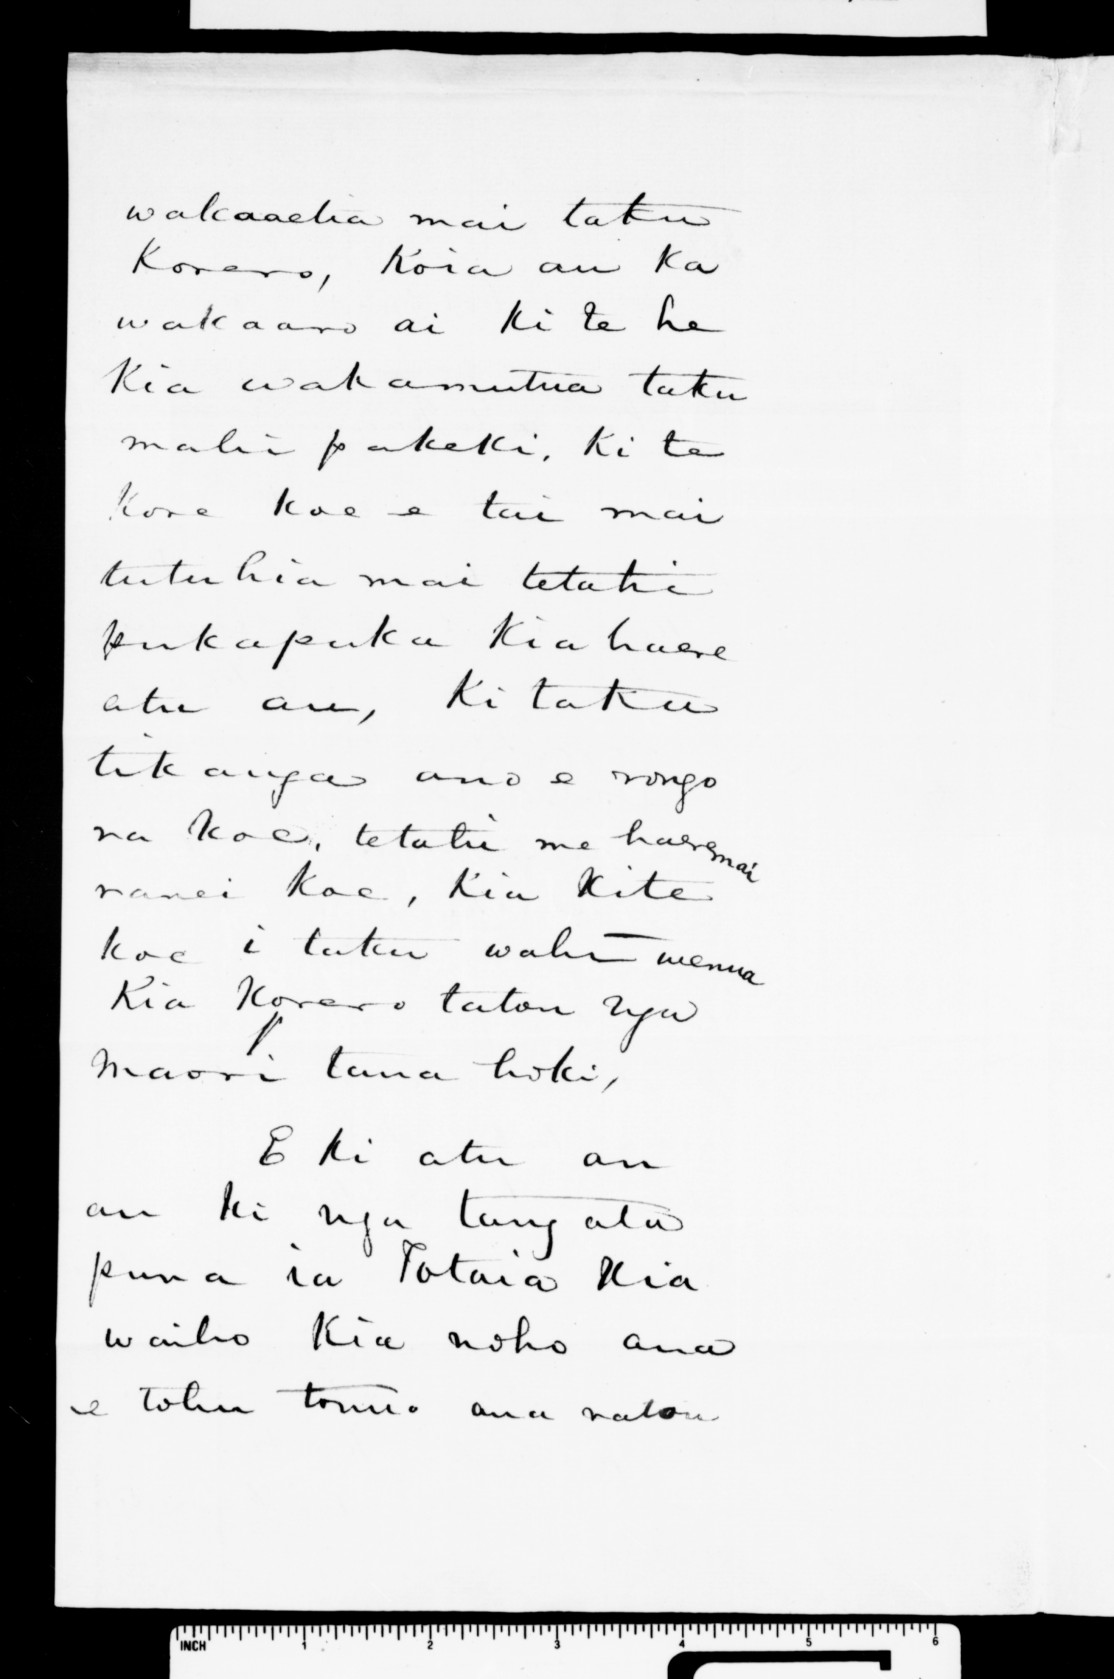 wakaaetia mai taku
Korero, Koia au ka
wakaaro ai ki te he
Kia wakamutua taku
mahi pakeki, Ki te
Kore koe e tai mai
tutuhia mai tetahi
pukapuka Kia haere
atu au, Ki taku
tikanga ano e rongo
na koe, tetahi me haere mai
ranei koe, Kia Kite
koe i taku wahi wenua
Kia Korero tatou nga
Maori tana hoki,
E ki atu an
au ki nga tangata
puna ia Totaia Kia
waiho Kia noho ana
e tohu tonu ana ratou
INCH 1 2 3 4 5 6